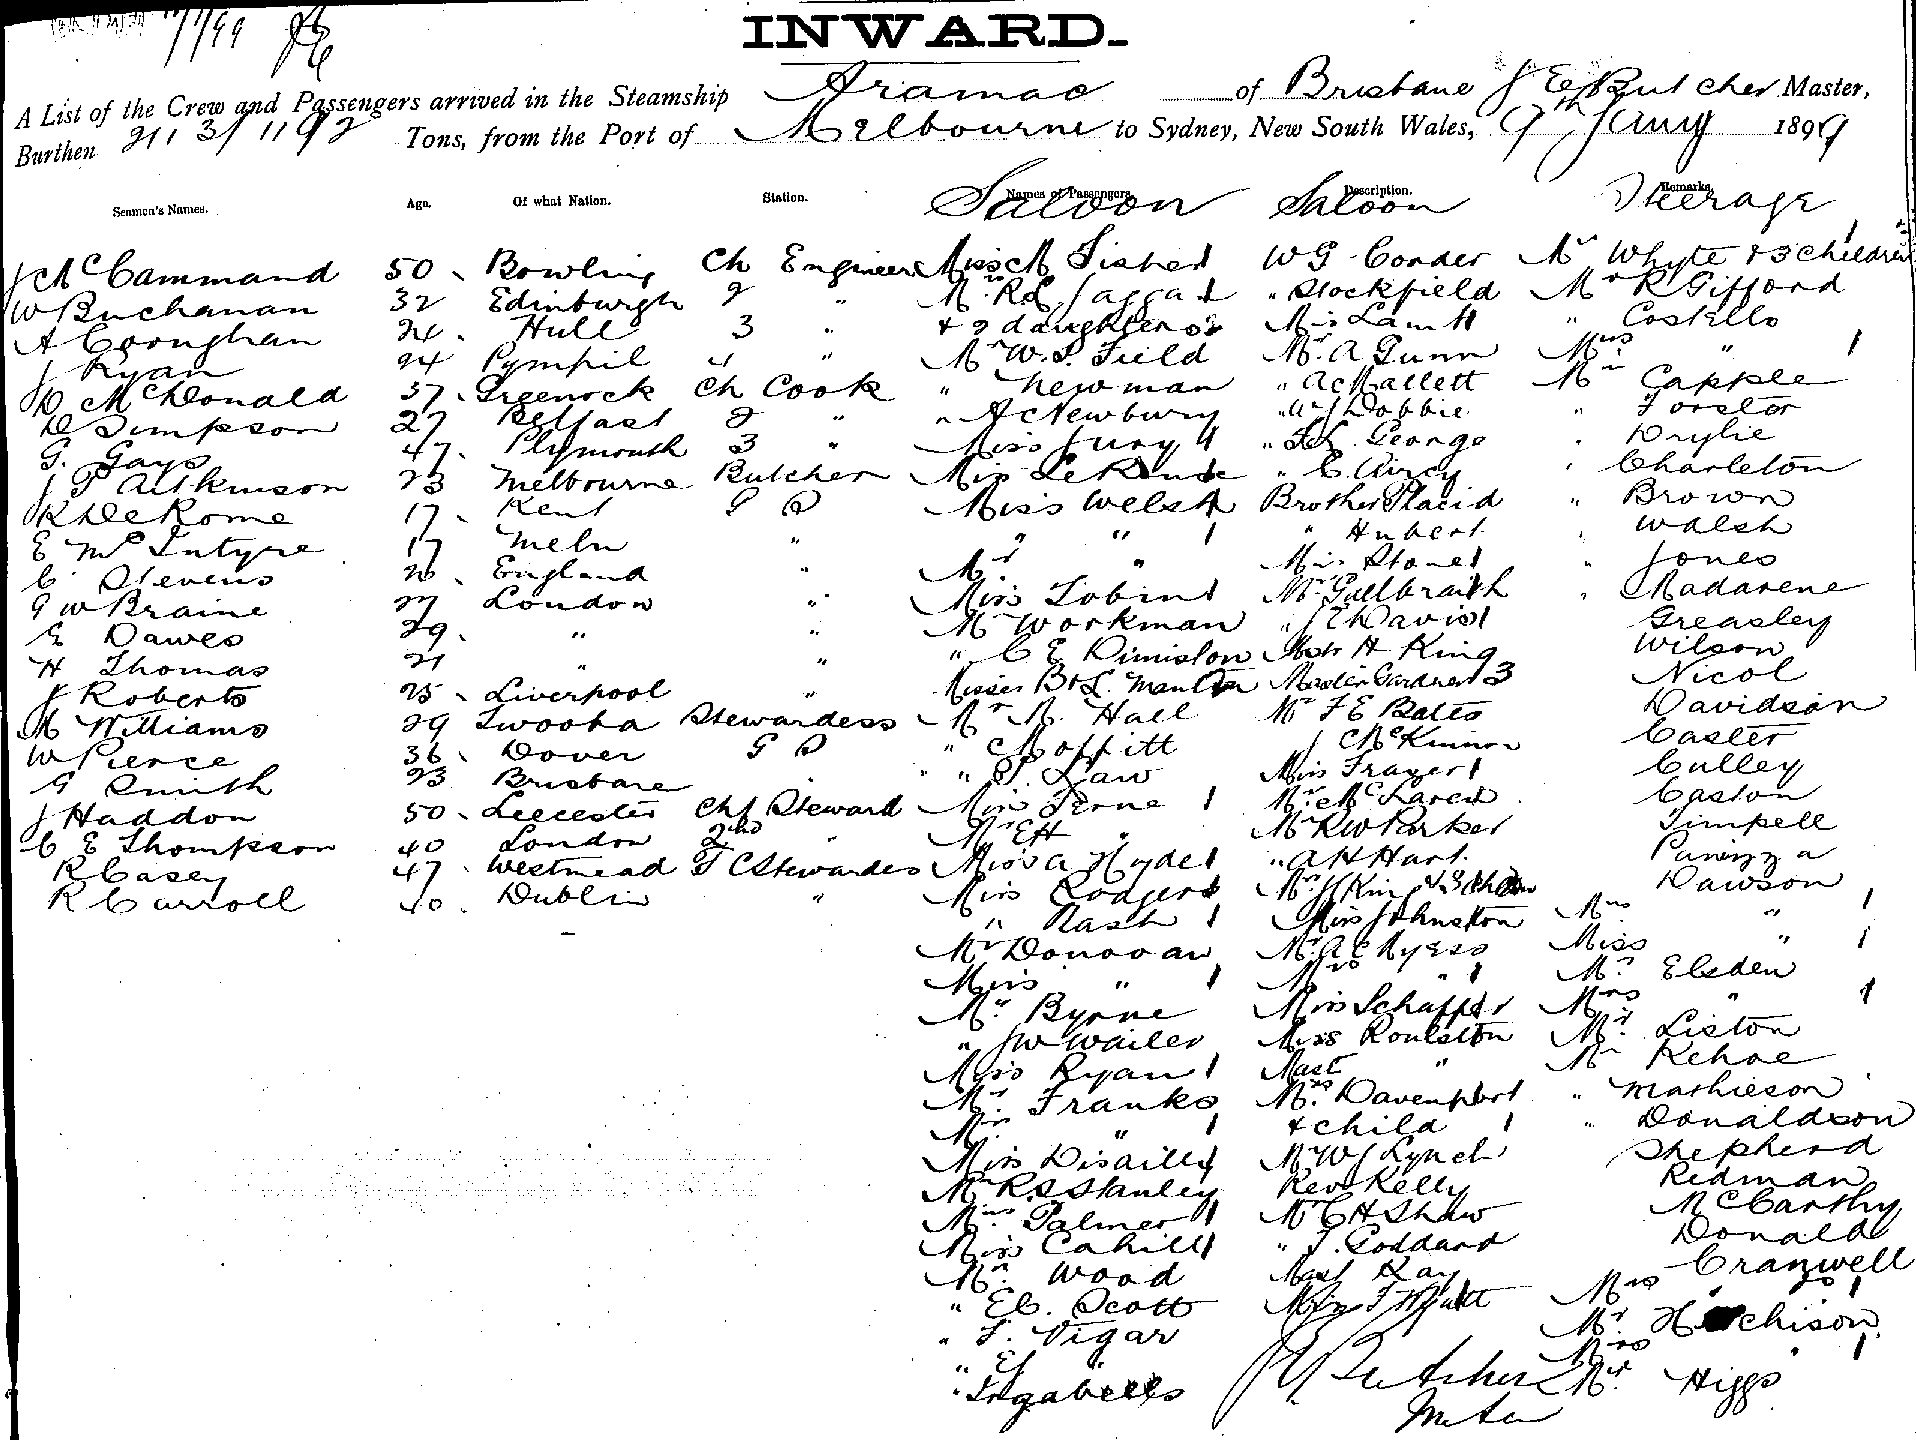 11/1/99
INWARD.
A List of the Crew and Passengers arrived in the Steamship Aramac of Brisbane J E Butcher Master,
Burthen 2113/1192 Tons, from the Port of Melbourne to Sydney, New South Wales, 9th Jany 1899
Seamen's Names. Age. Of what Nation. Station. Names of Passengers. Description. Remarks.
Saloon Saloon Steerage
J McCammand 50 Bowling Ch Engineer
W Buchanan 32 Edinburgh 2 "
A Coonghan 24 Hull 3 "
J Ryan 24 Pympil 4 "
D McDonald 37 Greenock Ch Cook
D Simpson 27 Belfast 2 "
G. Gays 47 Plymouth 3 "
J P Aitkinson 23 Melbourne Butcher
R DeRome 17 Kent G S
E McIntyre 17 Meln "
C Stevens 20 England "
G W Braine 27 London "
E Dawes 29 " "
H Thomas 21 " "
J Roberts 25 Liverpool "
M Williams 29 Twooba Stewardess
W Pierce 36 Dover G S
G Smith 23 Brisbane "
J Haddon 50 Leecester Chf Steward
C E Thompson 40 London 2nd "
R Casey 47 Westmead F C Stewardes
R Carroll 40 Dublin "
Miss M Fisher 1
Mr R L Jaggar
+ 2 daughters 2
Mr W. S. Field
" Newman
" A C Newbury
Miss Jury 1
Miss Le
Miss Welsh
" " 1
Mr "
Miss Tobin 1
Mr Workman
" C E Dimiston
Misses B & L.
Mr M. Hall
" C Moffitt
" S. Law
Miss Ferne 1
Mr E H "
Miss A Hyde 1
Miss Rodgers
" Nash 1
Mr Donovan
Miss " 1
Mr Byrne
" J W Wailer
Miss Ryan 1
Mr Franks
Mrs " 1
Miss Disailly
Mr R. S Stanley
Mrs Palmer 1
Miss Cahill 1
Mr Wood
" E C. Scott
" F. Vigar
" E "
" Ingabells
W G Conder
" Stockfield
Miss Lamb 1
Mr A Gunn
" A C Mallett
" W J Dobbie
" S L. George
" C Airey
Brother Placid
" Hubert
Miss Stone 1
Mr Galbraith
" J E Davis 1
Mstr H King
Master Gardner 3
Mr F E Bates
J McKinnon
Miss Frazer 1
Mr McLaren
Mr R W Parker
" A H Hart.
Mrs J King & 3 Chdn
Miss Johnston
Mr A E Myers
Mrs " 1
Miss Schaffer
Miss Roulston
Mast "
Mrs Davenport
+ child 1
Mr W J Lynch
Rev Kelly
Mr C H Shaw
" T. Goddard
Mast Kay
Miss F Myatt
J E Butcher
Master
Mrs Whyte & 3 Children
Mr R Gifford
" Costello
Mrs " 1
Mr Capple
" Forster
" Drylie
" Charleton
" Brown
" Walsh
" Jones
" Madarene
Greasley
Wilson
Nicol
Davidson
Caster
Culley
Caston
Timpell
Panizza
Dawson
Mrs " 1
Miss " 1
Mr Elsden
Mrs " 1
Mr Liston
Mr Kehoe
" Mathieson
" Donaldson
Shepherd
Redman
McCarthy
Donald
Cranwell
Mrs " 1
Mr Hutchison
Mrs " 1
Mr Higgs